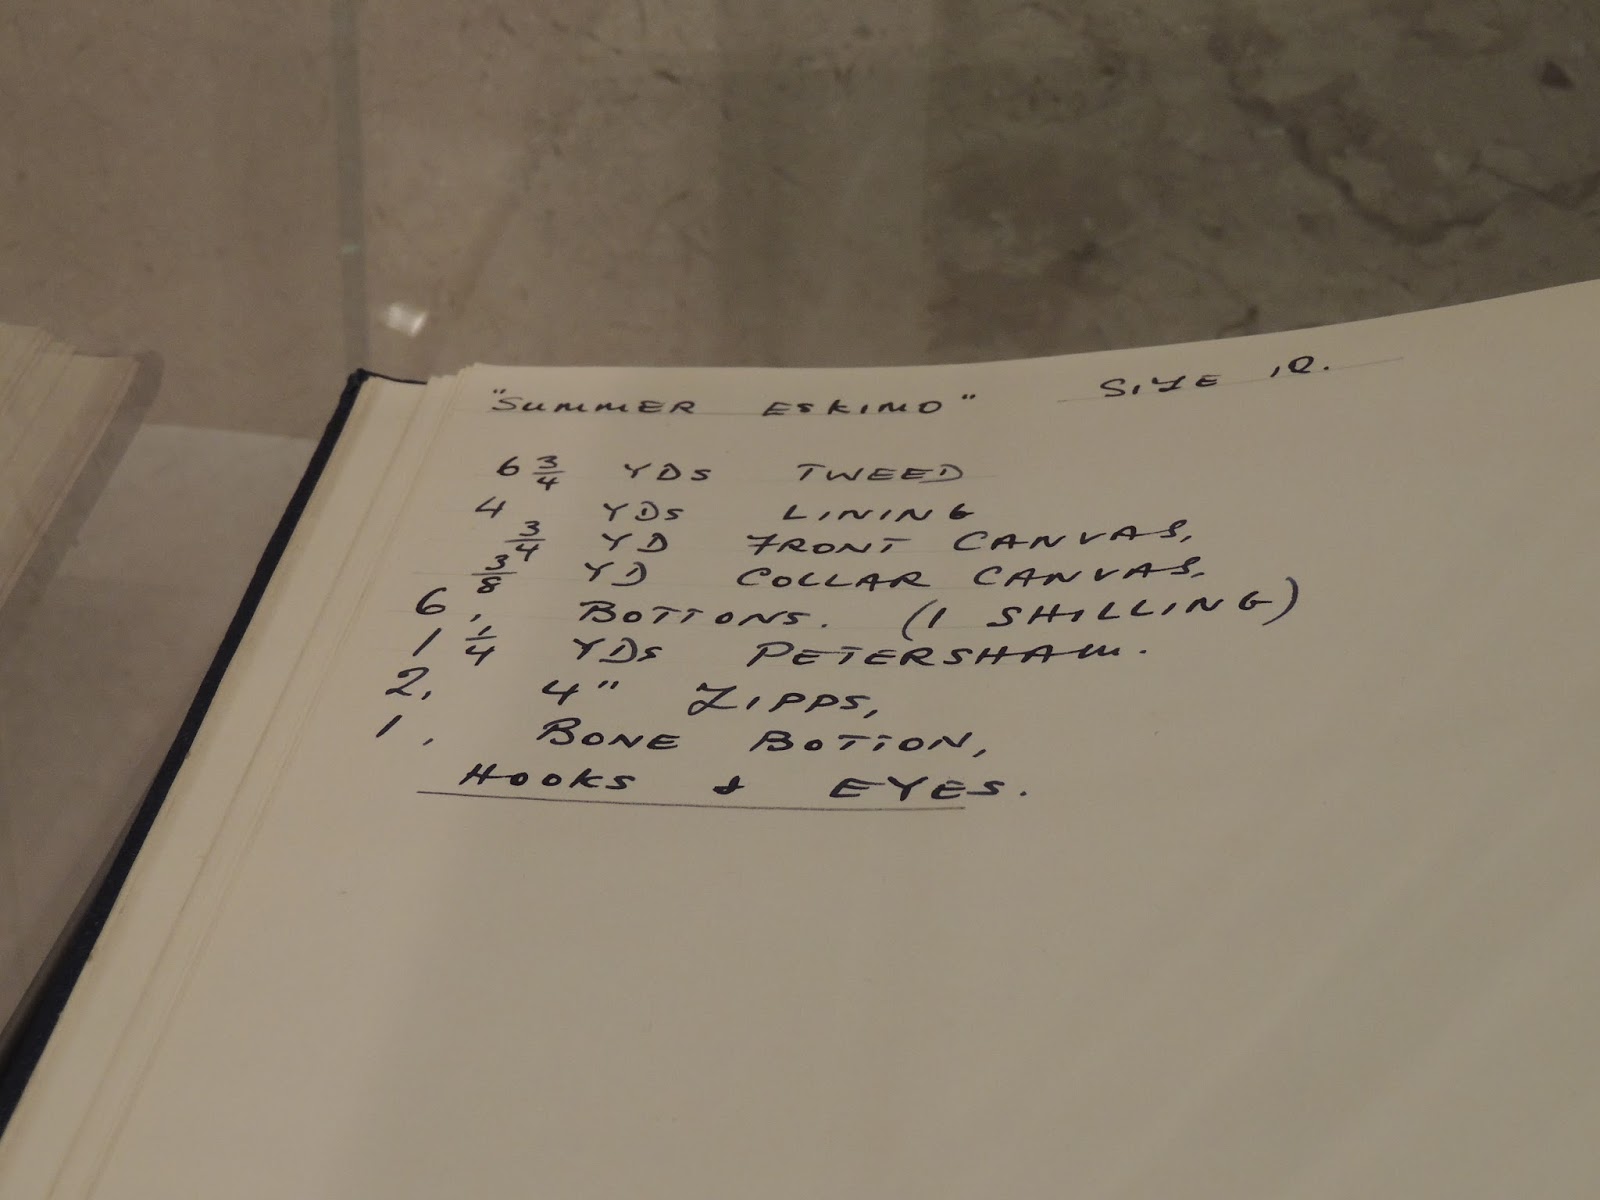 "SUMMER ESKIMO" SIZE 12.
6 3/4 YDS TWEED
4 YDS LINING
3/4 YD FRONT CANVAS,
3/8 YD COLLAR CANVAS.
6, BOTTONS. (1 SHILLING)
1 1/4 YDS PETERSHAM.
2, 4" ZIPPS,
1, BONE BOTTON,
HOOKS & EYES.